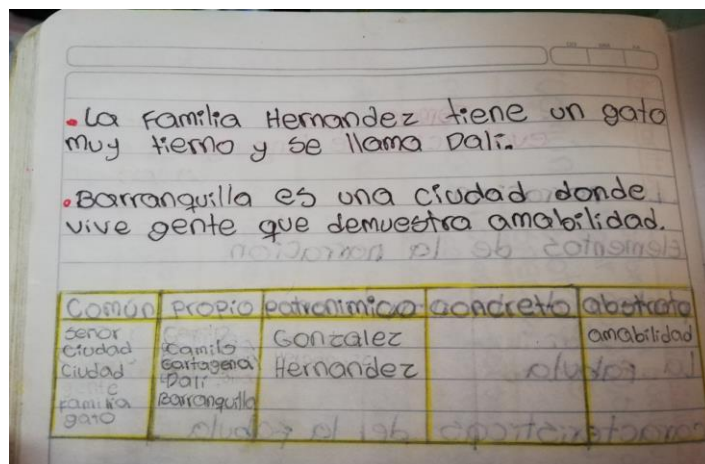 • La Familia Hernandez tiene un gato
muy tierno y se llama Dalí.
• Barranquilla es una ciudad donde
vive gente que demuestra amabilidad.
Común propio patronimico concretto abstrato
Señor
Ciudad
Ciudad
Familia
gato
Camilo
Cartagena
Dalí
Barranquilla
Gonzalez
Hernandez
amabilidad